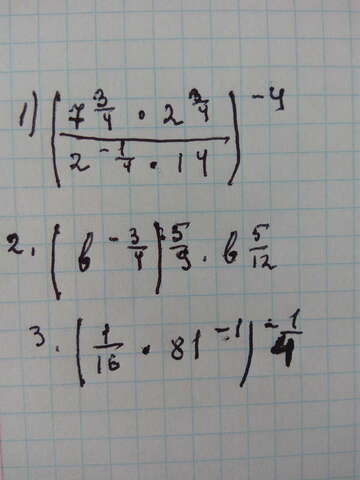 1) (7^(3/4) · 2^(3/4) / 2^(-1/4) · 14)^(-4)
2. (в^(-3/4))^(5/9) · в^(5/12)
3. (1/16 · 81^(-1))^(-1/4)